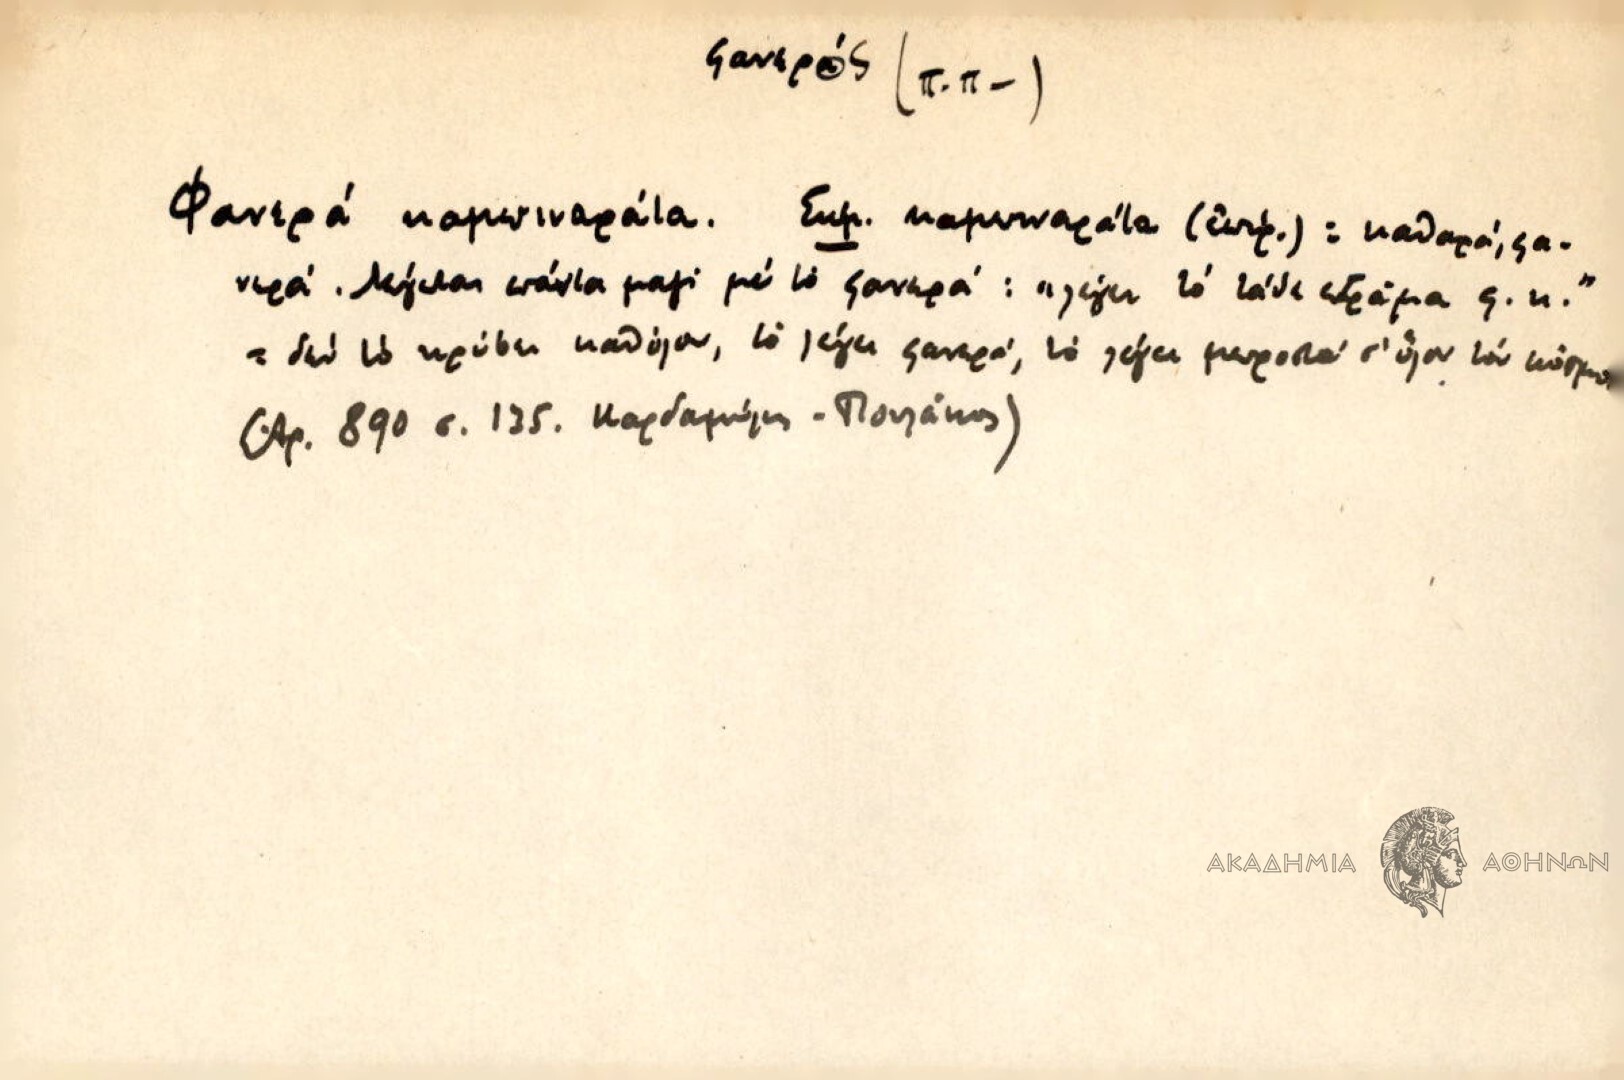 φανερός (π.π-)
Φανερά καμπιναράτα. Σημ. καμπιναράτα (ἐπίρ.) = καθαρά, φα-
νερά. Λέγεται πάντα μαζί μέ τό φανερά : "λέγει τό τάδε πρᾶμα φ. κ."
= δέν τό κρύβει καθόλου, τό λέγει φανερά, τό λέγει μπροστά σ' ὅλον τόν κόσμο
(Ἀρ. 890 σ. 135. Καρδαμύλη - Πουλάκος)
ΑΚΑΔΗΜΙΑ ΑΘΗΝΩΝ